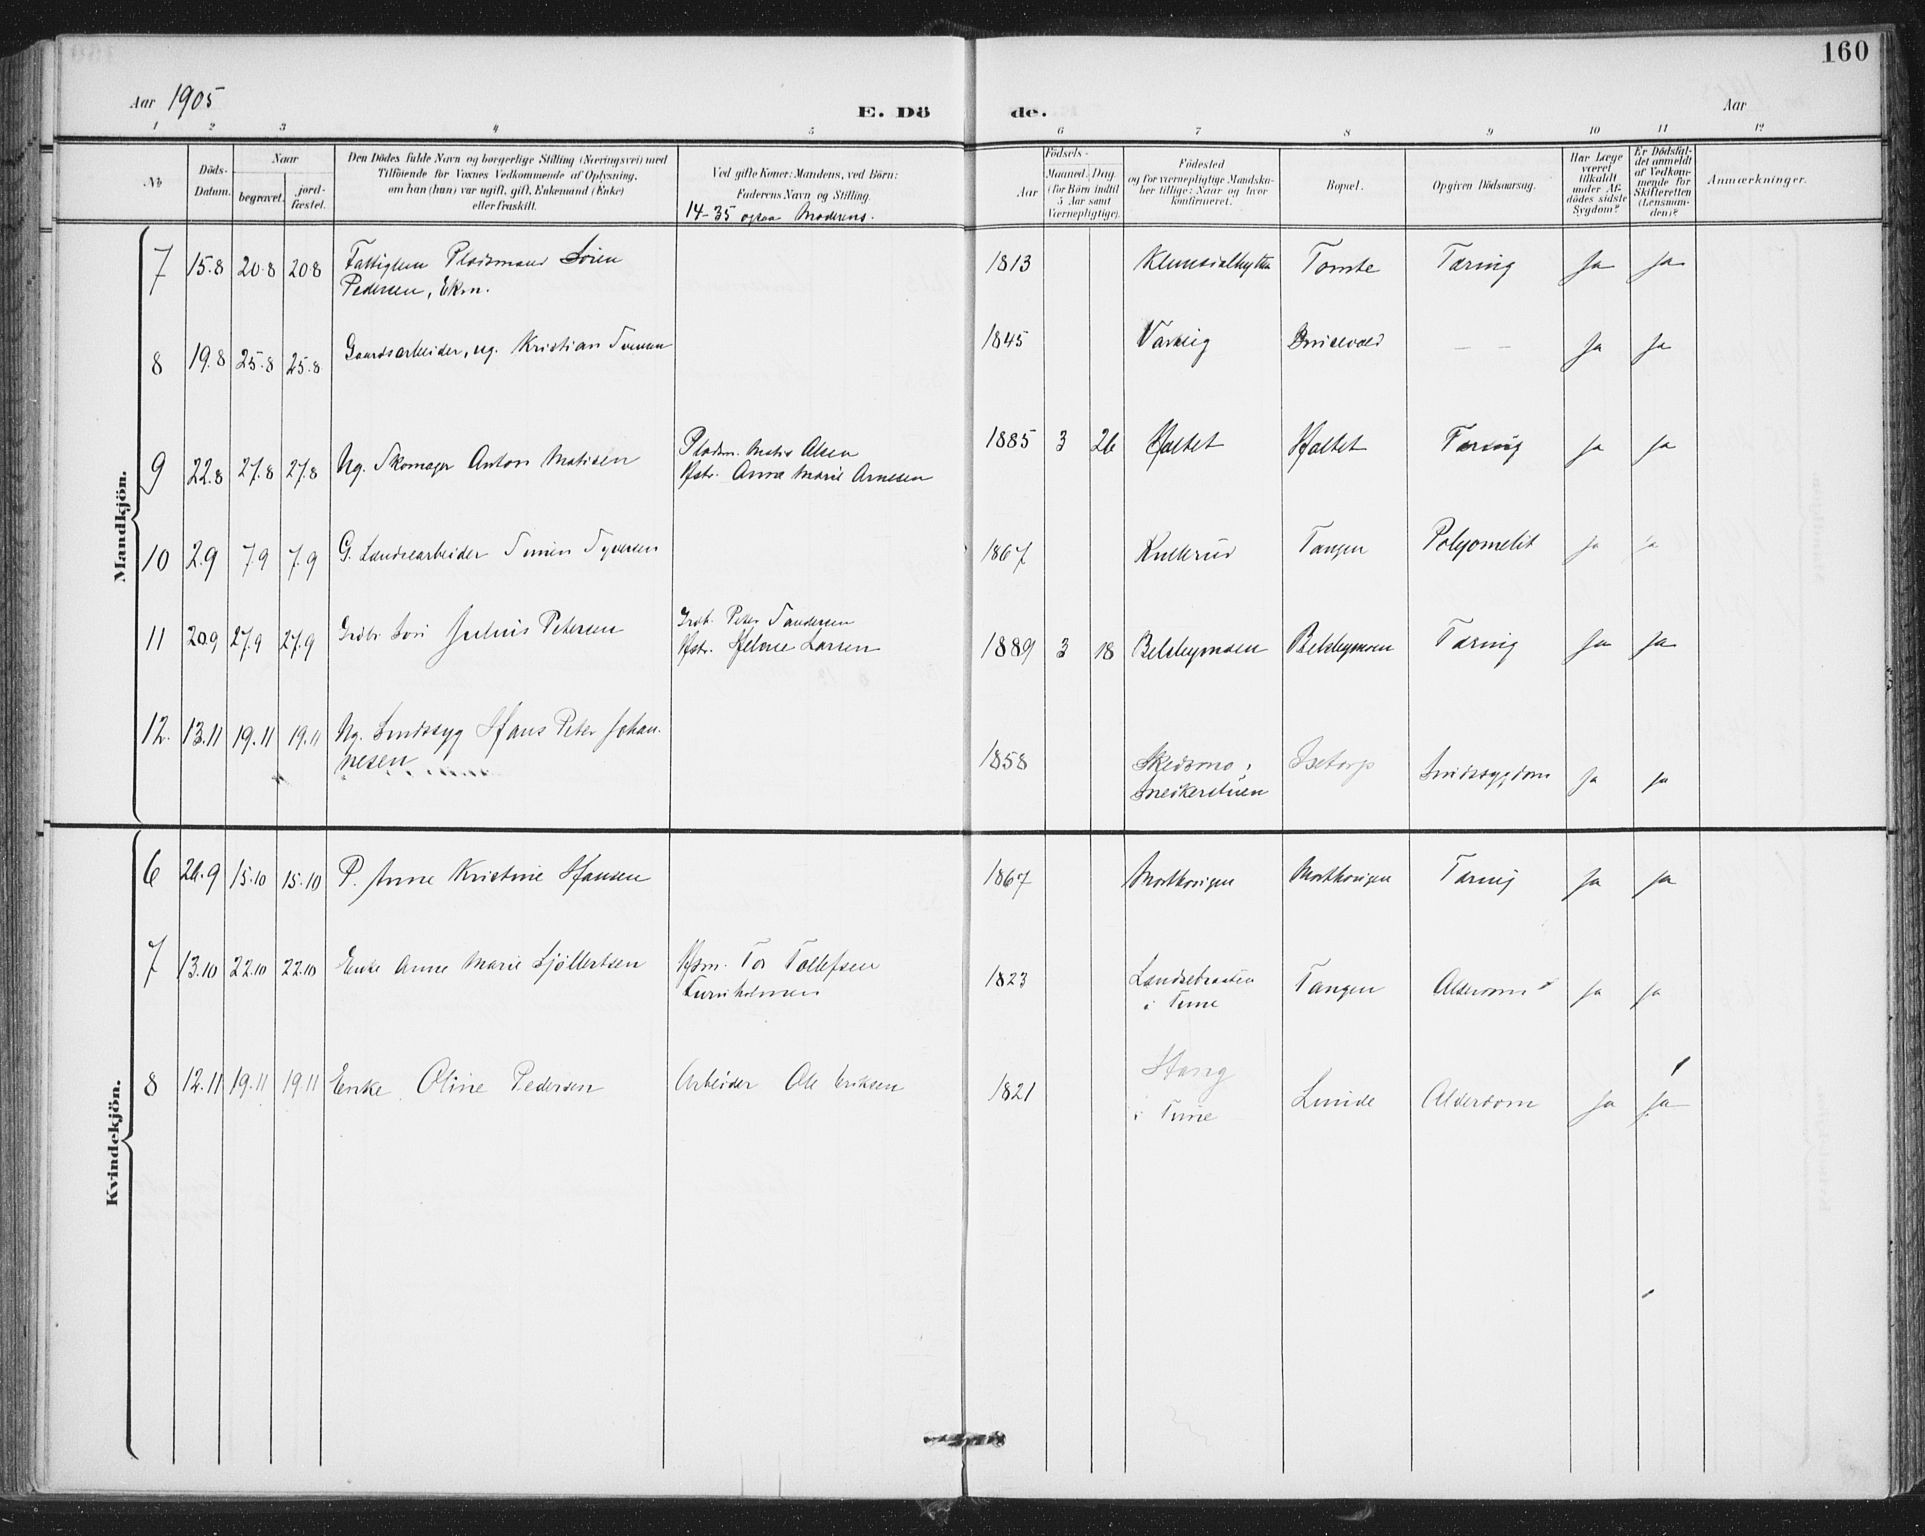 160
Aar 1905
E. Dö de.
Aar
1 2 3 4 5 6 7 8 9 10 11 12
No
Döds-
Datum.
Naar
begravet.
jord-
fæstet.
Den Dödes fulde Navn og borgerlige Stilling (Næringsvei) med
Tilföiende for Voxnes Vedkommende af Oplysning,
om han (hun) var ugift, gift, Enkemand (Enke)
eller fraskilt.
Ved gifte Koner: Mandens, ved Börn:
Faderens Navn og Stilling.
14-35 ogsaa Moderens.
Födsels-
Aar
Maaned. Dag.
(for Börn indtil
5 Aar samt
Værnepligtige).
Födested
og for værnepligtige Mandska-
ber tillige: Naar og hvor
konfirmeret.
Bopæl.
Opgiven Dödsaarsag.
Har Læge
været
tilkaldt
under Af-
dödes sidste
Sygdom?
Er Dödsfal-
det anmeldt
af Vedkom-
mende for
Skifteretten
(Lensman-
den)?
Anmærkninger.
Mandkjön.
7 15.8 20.8 20.8 Fattiglem Pladsmand Sören 1813 Tomte Tæring Ja Ja
Pedersen, Ekm.
8 19.8 25.8 25.8 Gaardsarbeider, ug. Kristian 1845 Varteig — — Ja Ja
9 22.8 27.8 27.8 Ug. Skomager Anton Matisen Pladsm. Matis Olsen 1885 3 26 Holtet Holtet Tæring Ja Ja
Hstr. Anne Marie Arnesen
10 2.9 7.9 7.9 G. Landsearbeider Simen Syversen 1867 Kullerud Tangen Polyomelit Ja Ja
11 20.9 27.9 27.9 Grdbr. Sön Julius Petersen Grdb. Peter Sandersen 1889 3 18 Belsbymoen Belsbymoen Tæring Ja Ja
Hstr. Helene Larsen
12. 13.11 19.11 19.11 Ug. Sindssyg Hans Peter Johan- 1858 Skedsmo, Isetorp Sindssygdom Ja Ja
nesen Snekerstuen
Kvindekjön.
6 29.9 15.10 15.10 P. Anne Kristine Hansen 1867 Tæring Ja Ja
7 13.10 22.10 22.10 Enke Anne Marie Sjöllertsen Hsm. Tor Tollefsen 1823 Landsebraaten Tangen Alderdom Ja Ja
Furuholmen i Tune
8 12.11 19.11 19.11 Enke Oline Pedersen Arbeider Ole Eriksen 1821 Haug Lunde Alderdom Ja Ja
i Tune